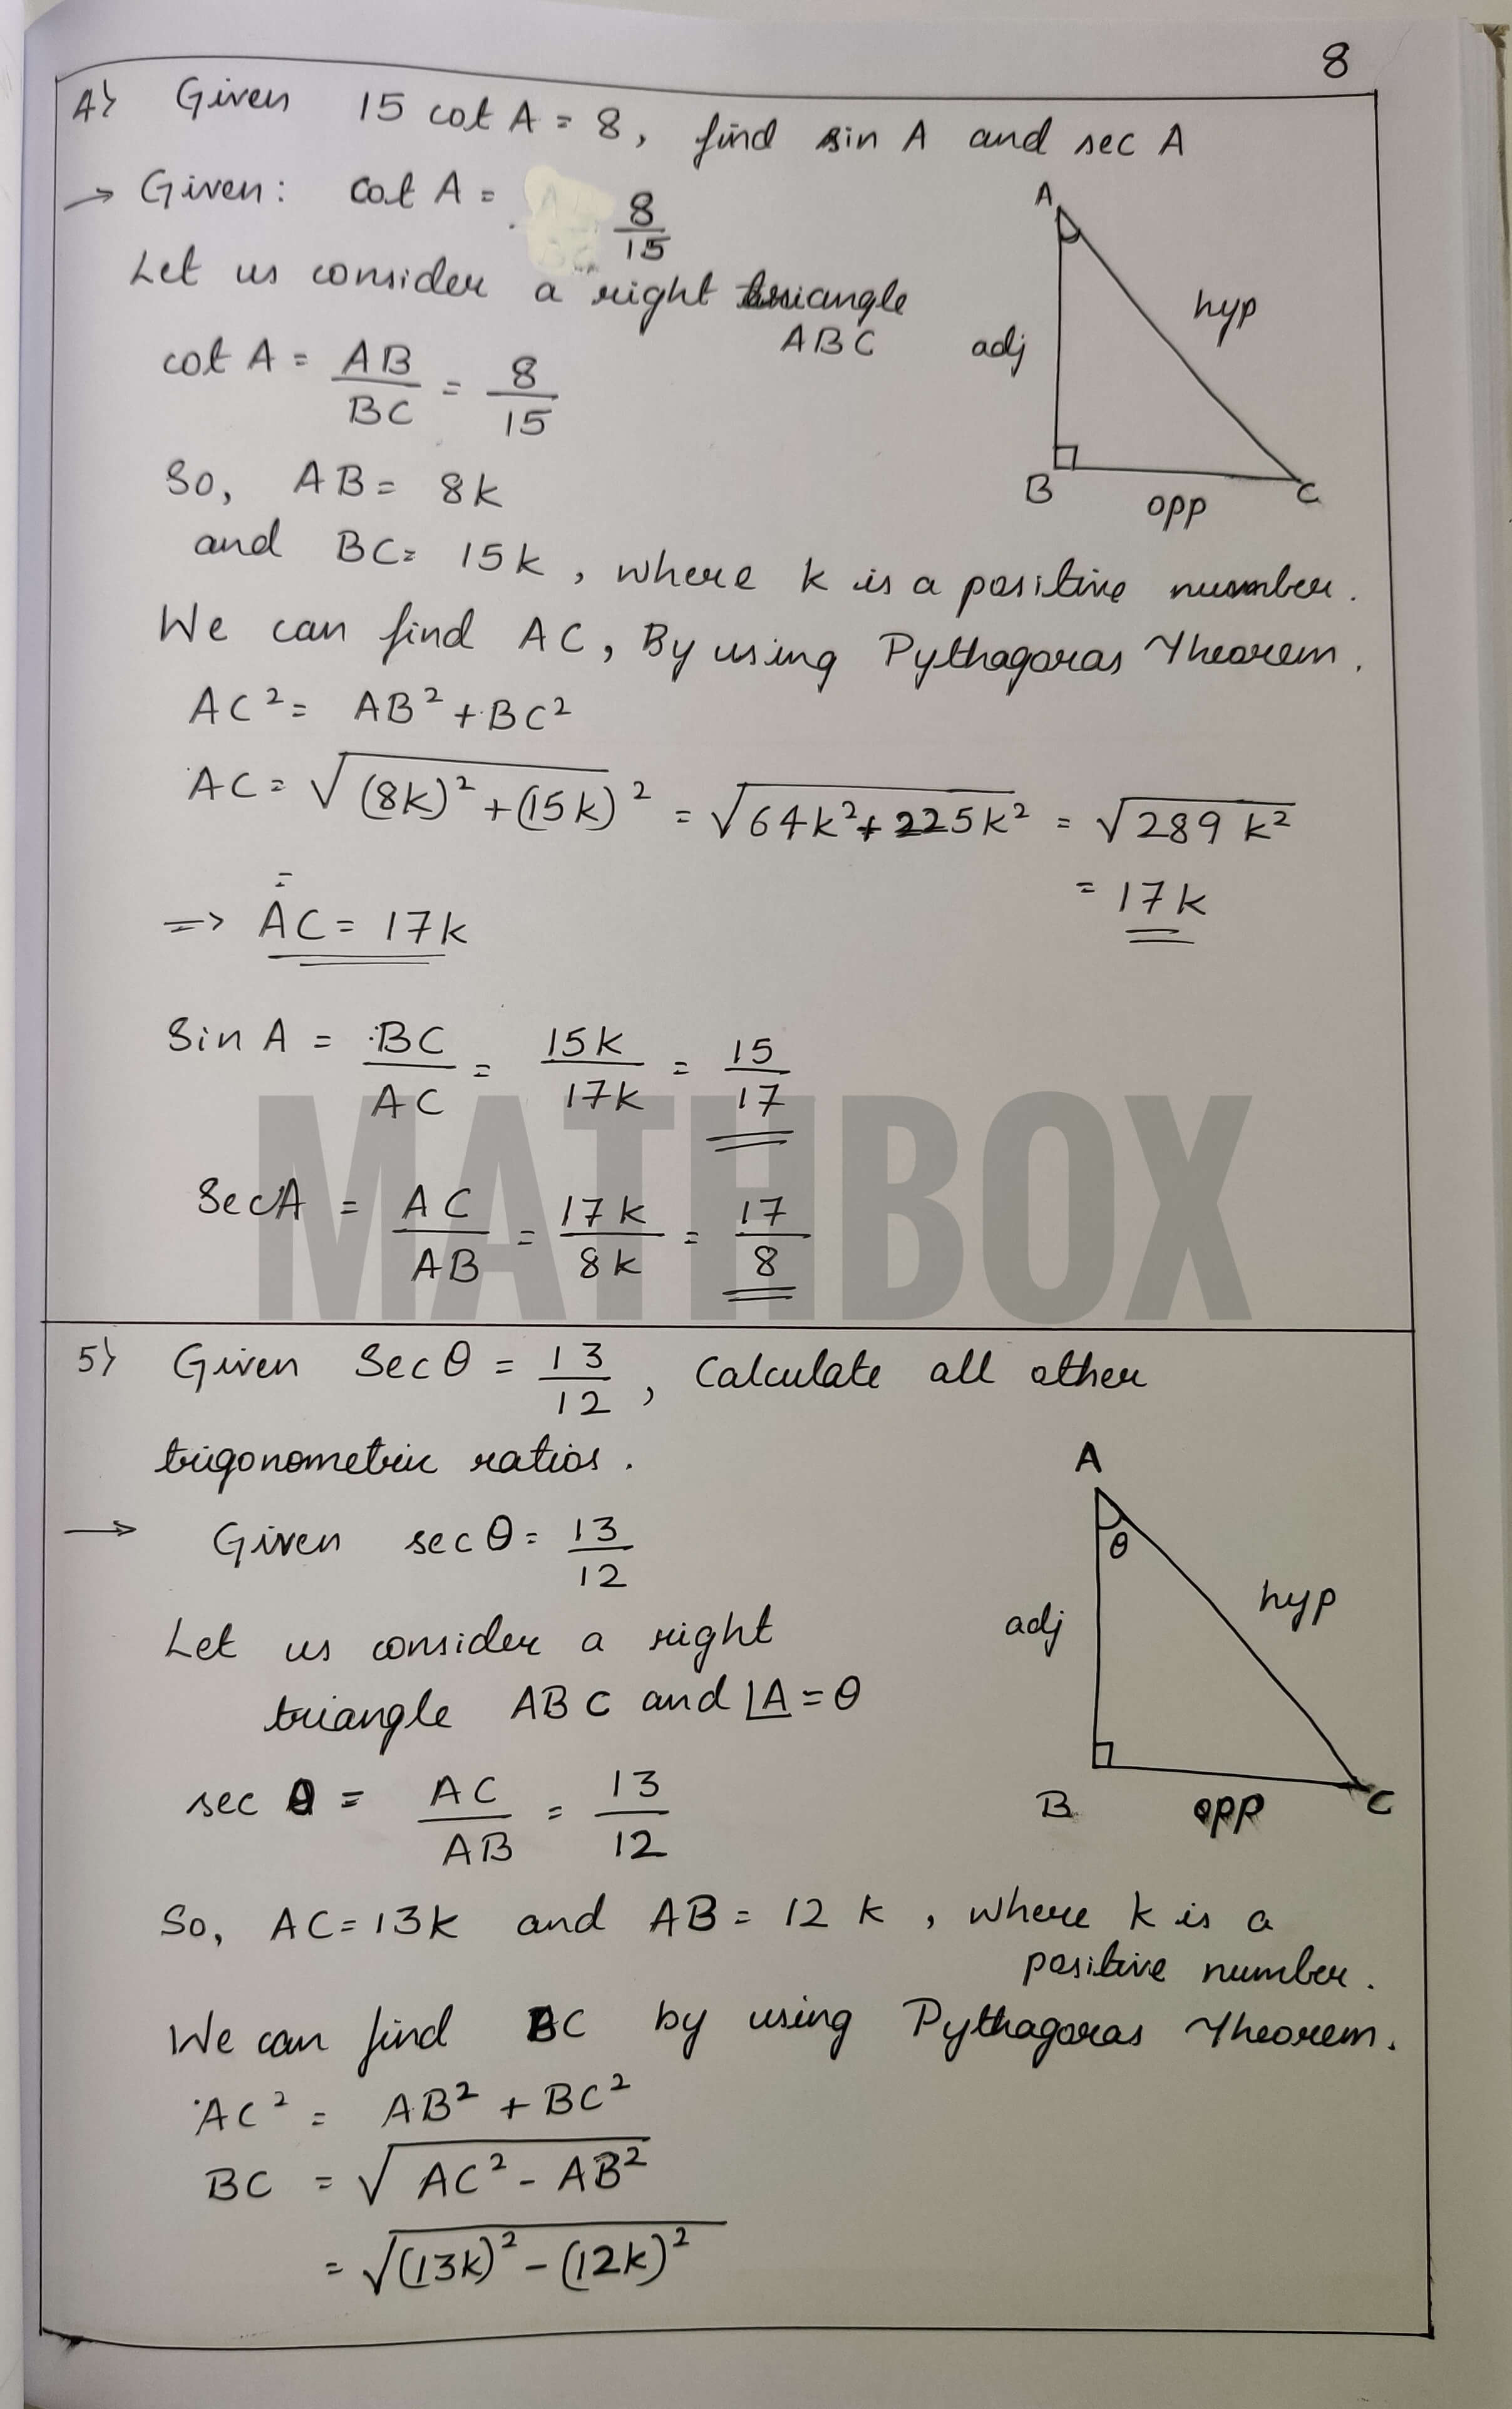 8
4) Given 15 cot A = 8, find sin A and sec A
→ Given: cot A = 8/15
Let us consider a right triangle
ABC
cot A = AB/BC = 8/15
So, AB = 8k
and BC = 15k, where k is a positive number.
We can find AC, By using Pythagoras Theorem.
AC² = AB² + BC²
AC = √(8k)² + (15k)² = √64k² + 225k² = √289 k²
= 17k
=> AC = 17k
Sin A = BC/AC = 15k/17k = 15/17
Sec A = AC/AB = 17k/8k = 17/8
A
adj
hyp
B
opp
C
MATHBOX
5) Given Sec θ = 13/12, Calculate all other
trigonometric ratios.
→ Given sec θ = 13/12
Let us consider a right
triangle ABC and ∠A = θ
sec θ = AC/AB = 13/12
So, AC = 13k and AB = 12k, where k is a
positive number.
We can find BC by using Pythagoras Theorem.
AC² = AB² + BC²
BC = √AC² - AB²
= √(13k)² - (12k)²
A
θ
adj
hyp
B
opp
C